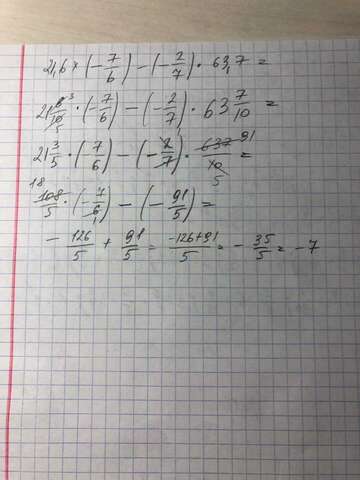 21,6 × (-7/6) - (-2/7) · 63,7 =
21 6/10 3 5 · (-7/6) - (-2/7) · 63 7/10 =
21 3/5 · (7/6) - (-2/7) · 637/10 91 5 =
18 108/5 · (-7/6 1) - (-91/5) =
-126/5 + 91/5 = -126+91/5 = -35/5 = -7